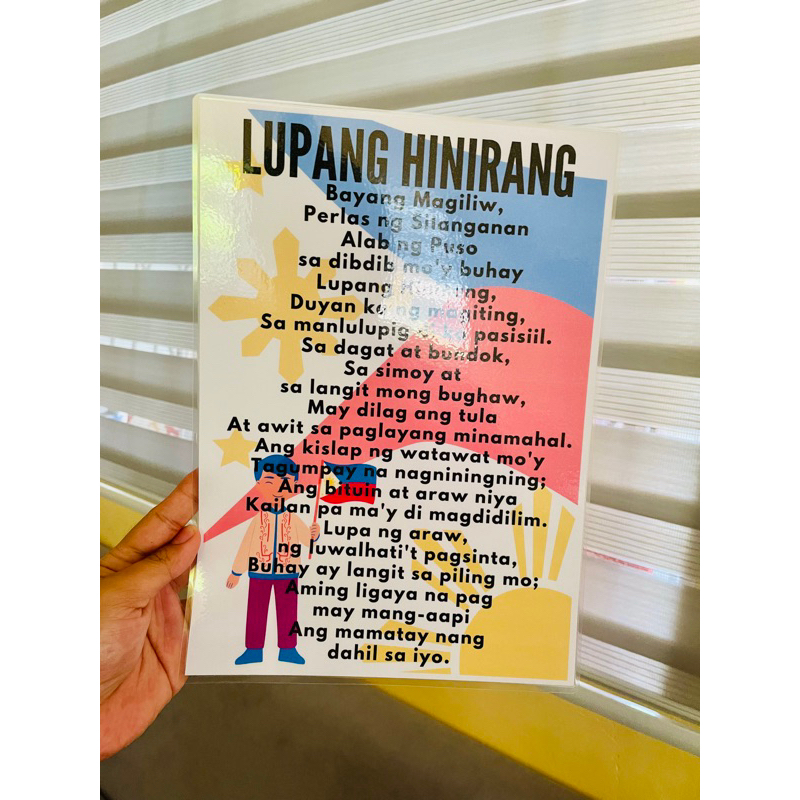 LUPANG HINIRANG
Bayang Magiliw,
Perlas ng Silanganan
Alab ng Puso
sa dibdib mo'y buhay
Lupang
Duyan ka ng magiting,
Sa manlulupig pasisiil.
Sa dagat at bundok,
Sa simoy at
sa langit mong bughaw,
May dilag ang tula
At awit sa paglayang minamahal.
Ang kislap ng watawat mo'y
Tagumpay na nagniningning;
Ang bituin at araw niya
Kailan pa ma'y di magdidilim.
Lupa ng araw,
ng luwalhati't pagsinta,
Buhay ay langit sa piling mo;
Aming ligaya na pag
may mang-aapi
Ang mamatay nang
dahil sa iyo.